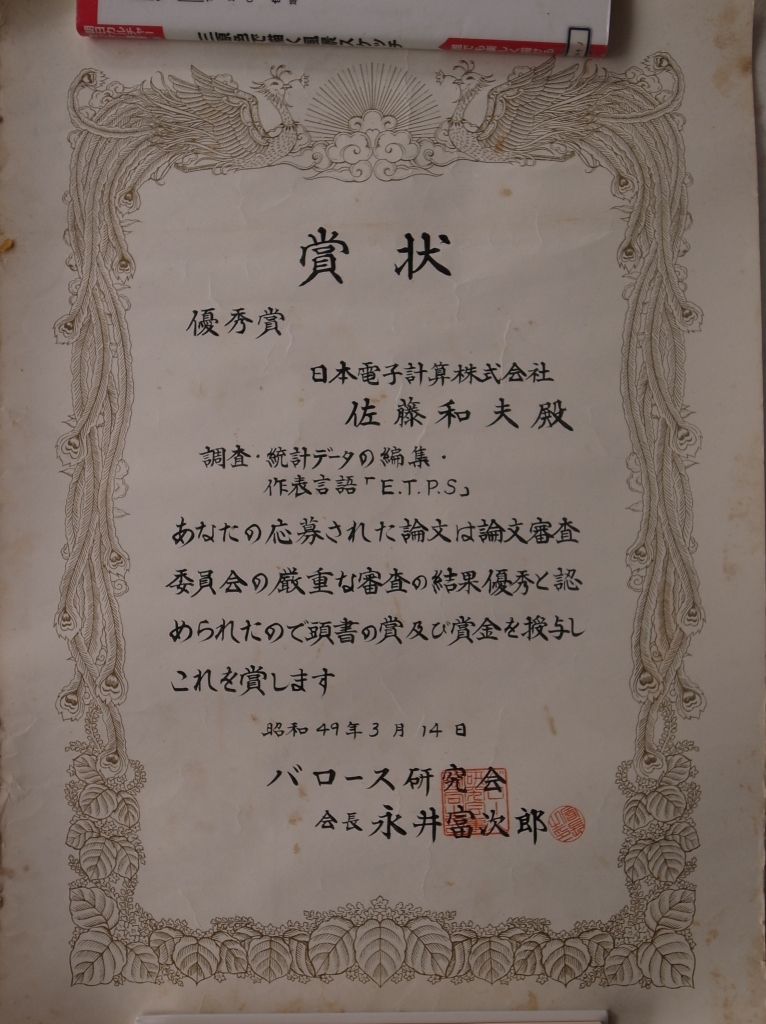 三原色で描く風景スケッチ
賞状
優秀賞
日本電子計算株式会社
佐藤和夫殿
調査・統計データの編集・
作表言語「E.T.P.S」
あなたの応募された論文は論文審査
委員会の厳重な審査の結果優秀と認
められたので頭書の賞及び賞金を授与し
これを賞します
昭和49年3月14日
バロース研究会
会長 永井富次郎